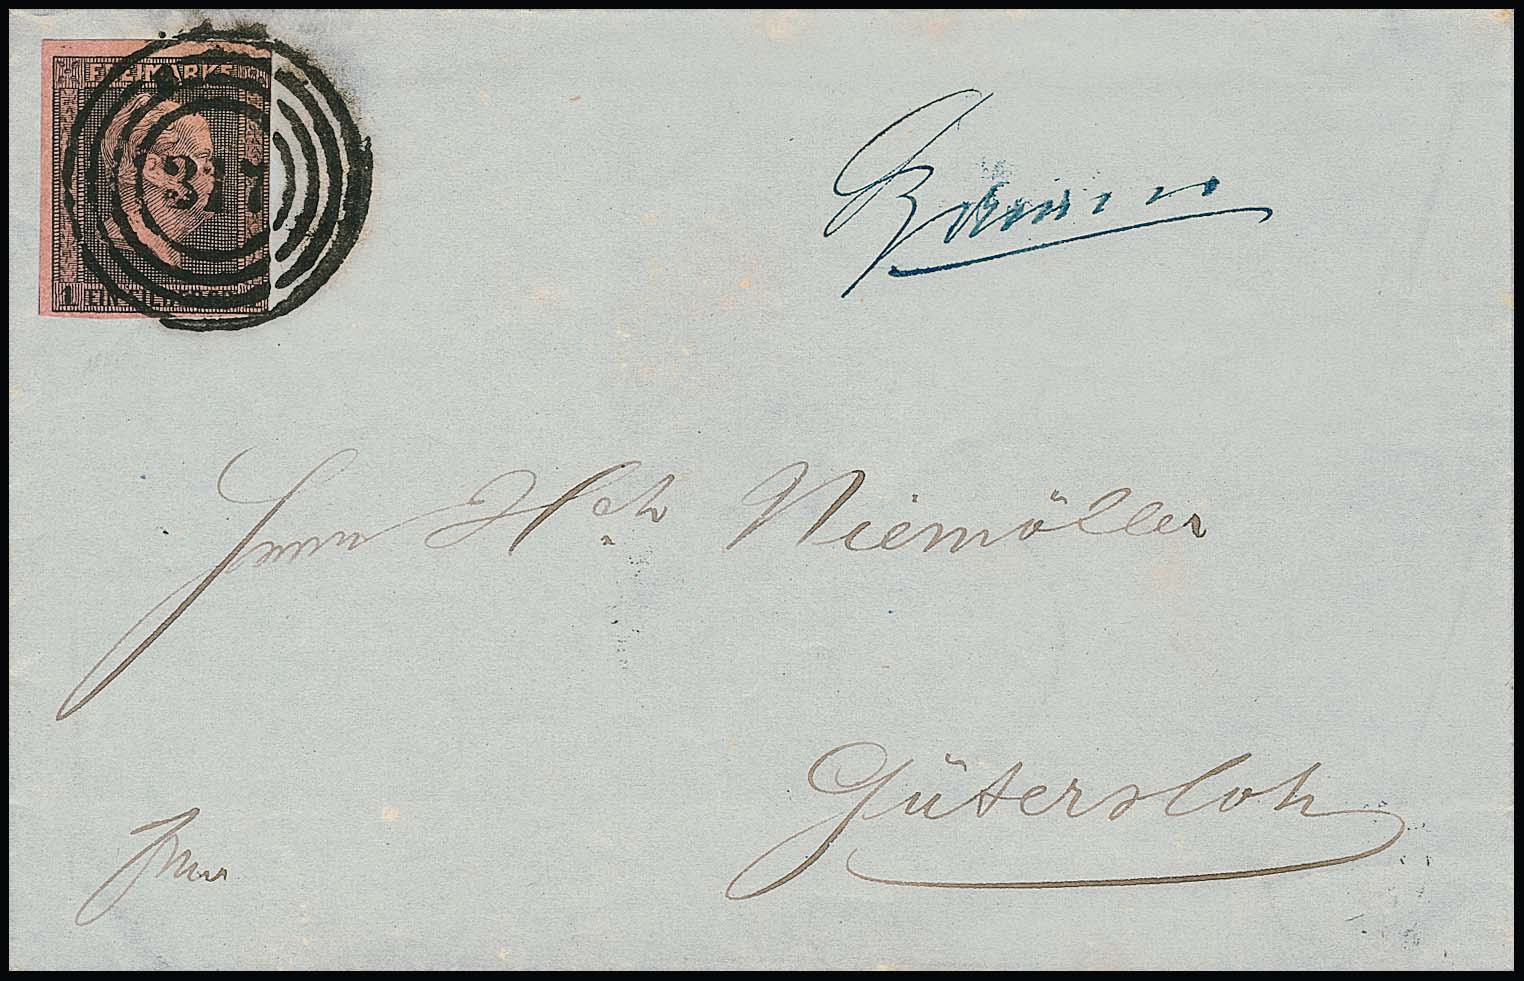 FREIMARKE
317
1 EIN SILBERGR.
Herrn Hch Niemöller
Gütersloh